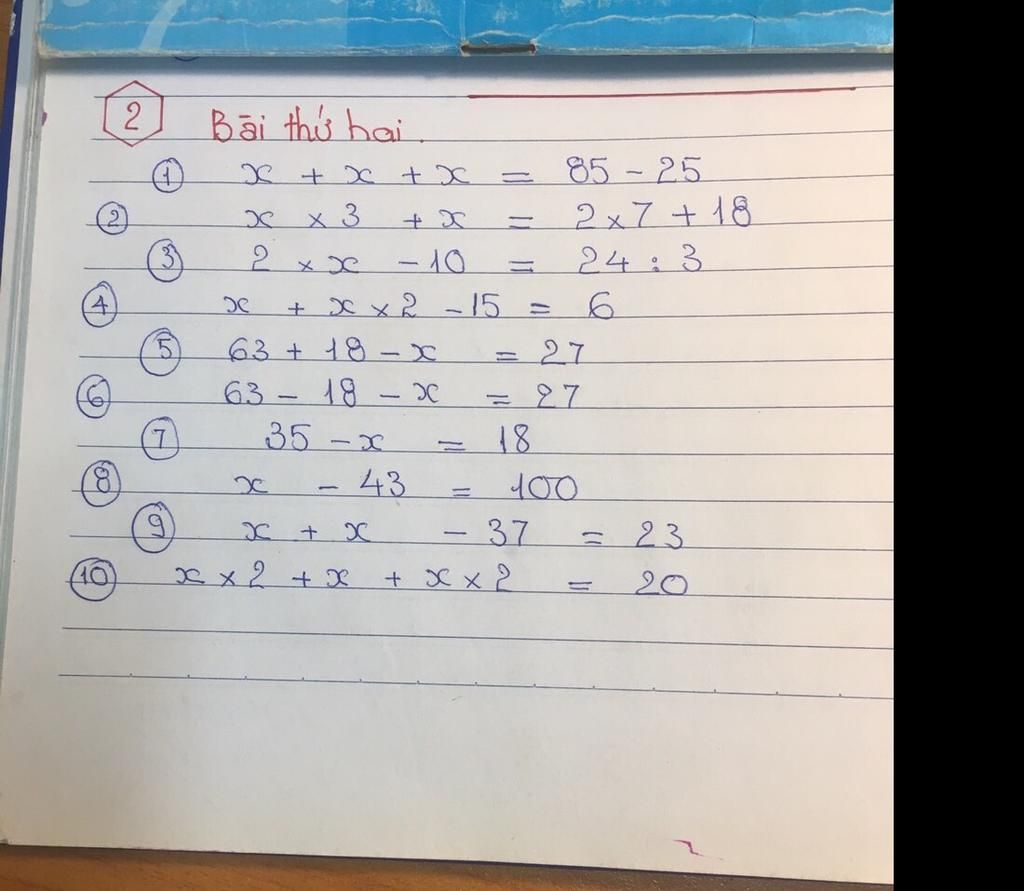 2 Bài thứ hai.
① x + x + x = 85 - 25
② x × 3 + x = 2 × 7 + 18
③ 2 × x - 10 = 24 : 3
④ x + x × 2 - 15 = 6
⑤ 63 + 18 - x = 27
⑥ 63 - 18 - x = 27
⑦ 35 - x = 18
⑧ x - 43 = 100
⑨ x + x - 37 = 23
⑩ x × 2 + x + x × 2 = 20